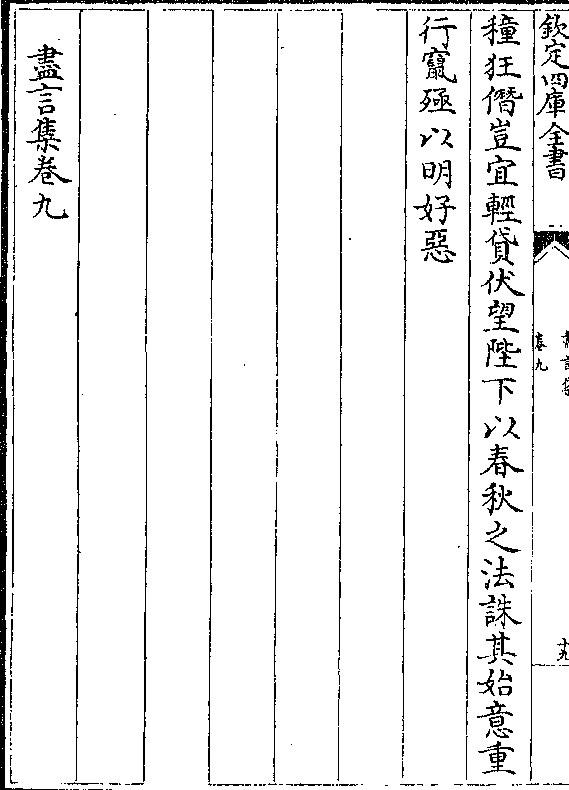 欽定四庫全書
盡言集
卷九
十九
穜狂僭豈宜輕貸伏望陛下以春秋之法誅其始意重
行竄殛以明好惡
盡言集卷九